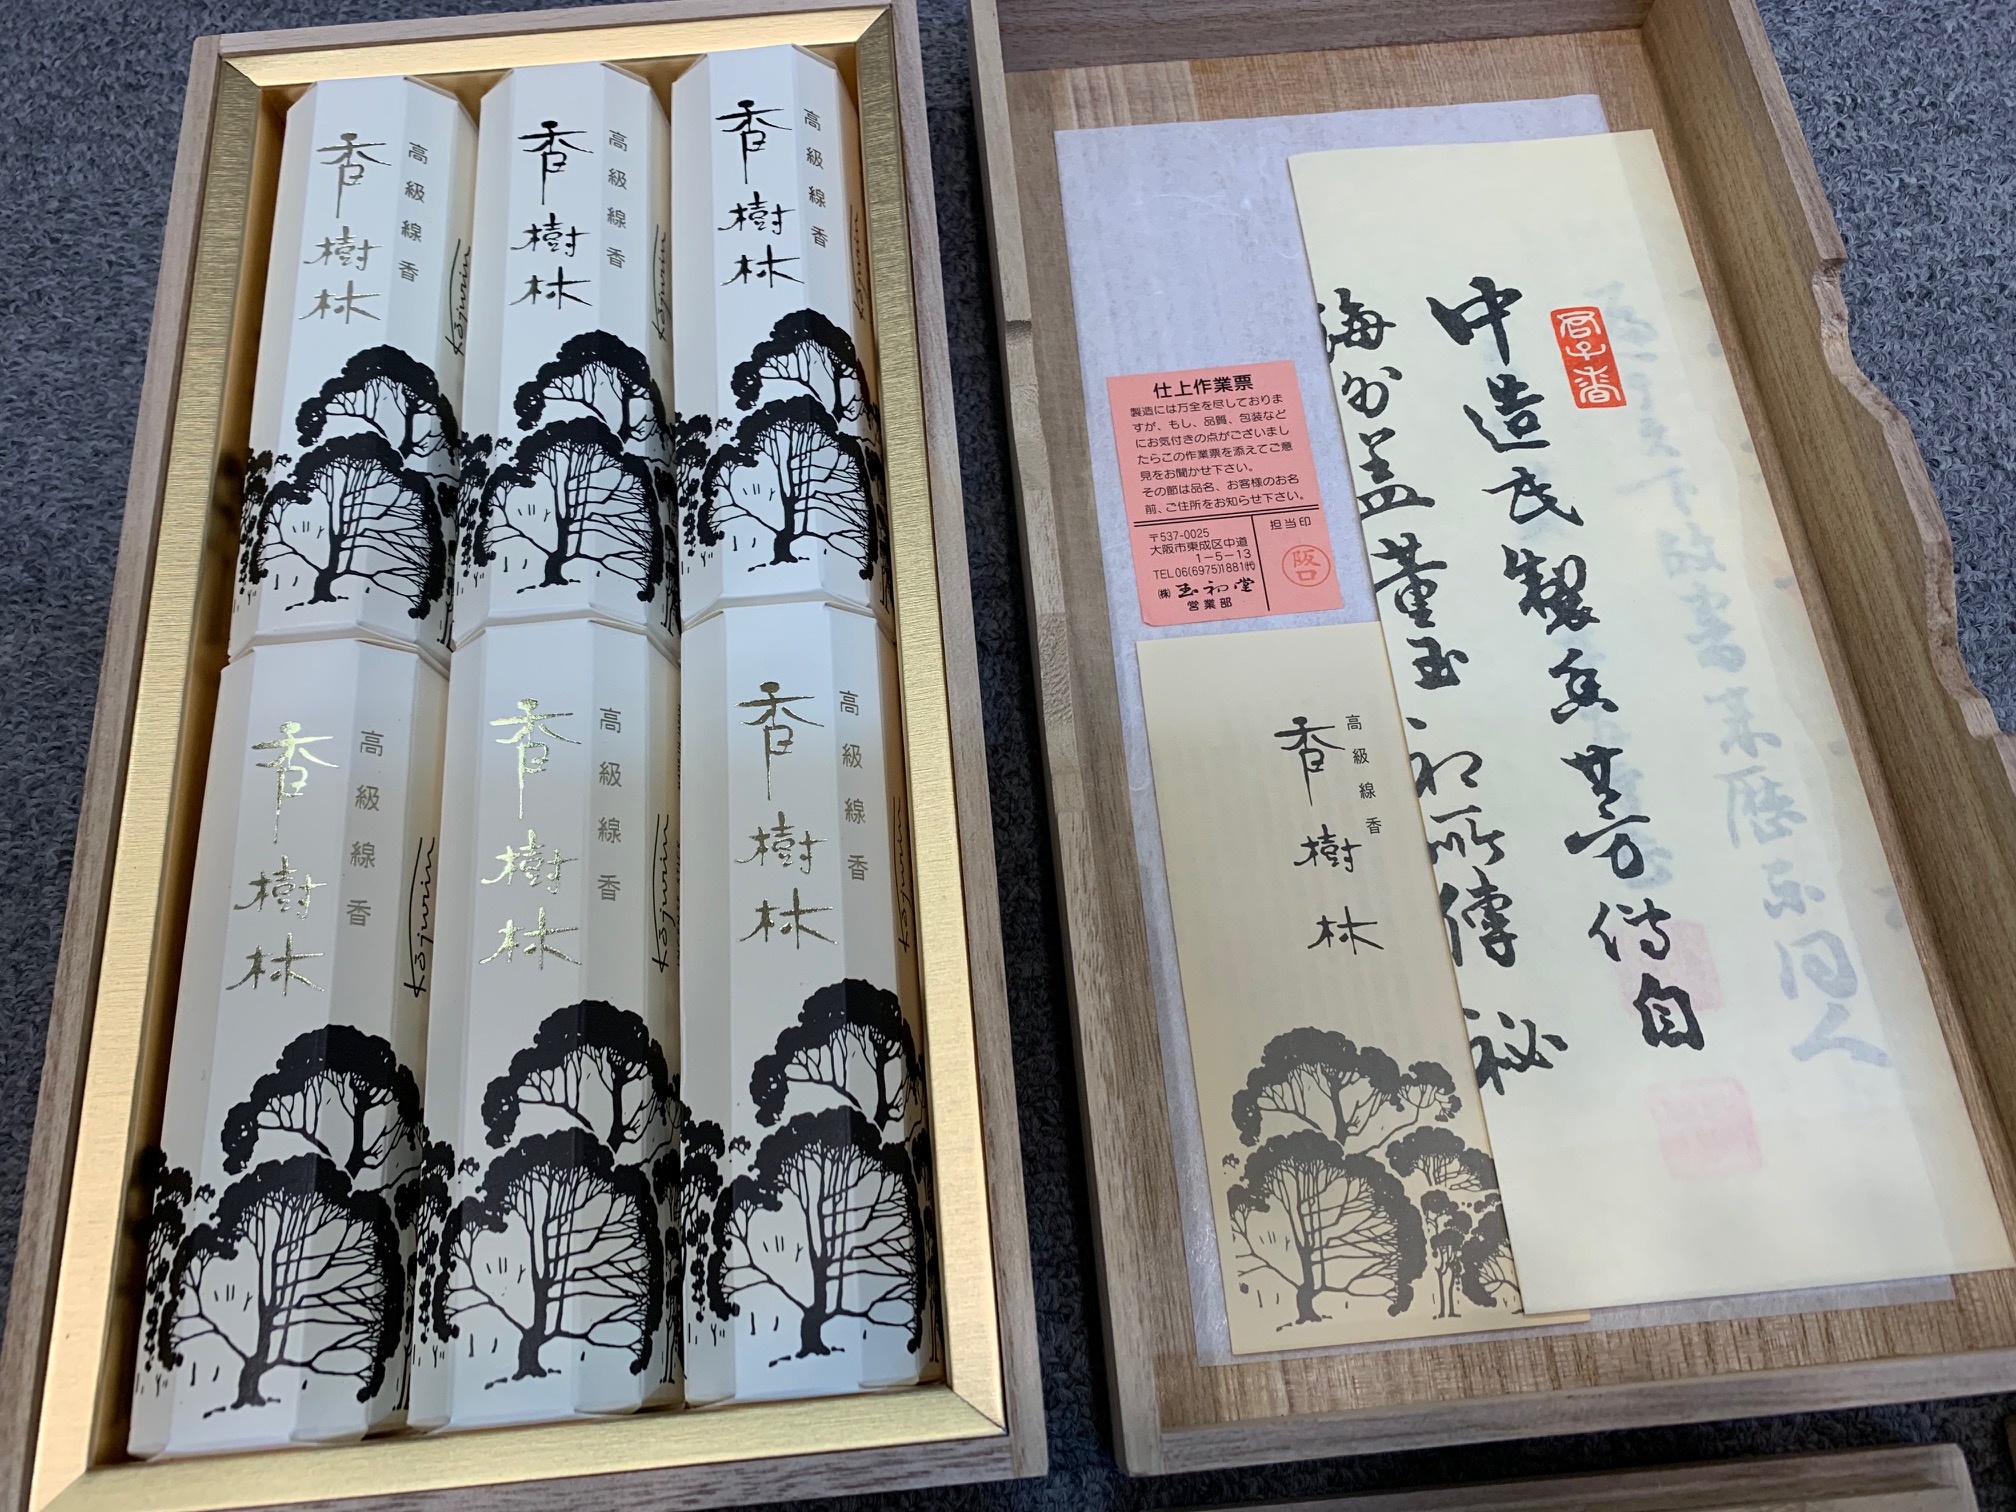 香樹林
高級線香
Kōjurin
香樹林
高級線香
Kōjurin
香樹林
高級線香
Kōjurin
香樹林
高級線香
Kōjurin
香樹林
高級線香
Kōjurin
香樹林
高級線香
Kōjurin
仕上作業票
製造には万全を尽しておりま
すが、もし、品質、包装など
にお気付きの点がございまし
たらこの作業票を添えてご意
見をお聞かせ下さい。
その節は品名、お客様のお名
前、ご住所をお知らせ下さい。
〒537-0025
大阪市東成区中道
1-5-13
TEL 06(6975)1881㈹
㈱玉初堂
営業部
担当印
阪口
高級線香
香樹林
中造氏製
芳伝自
海外盖董玉初所傳秘